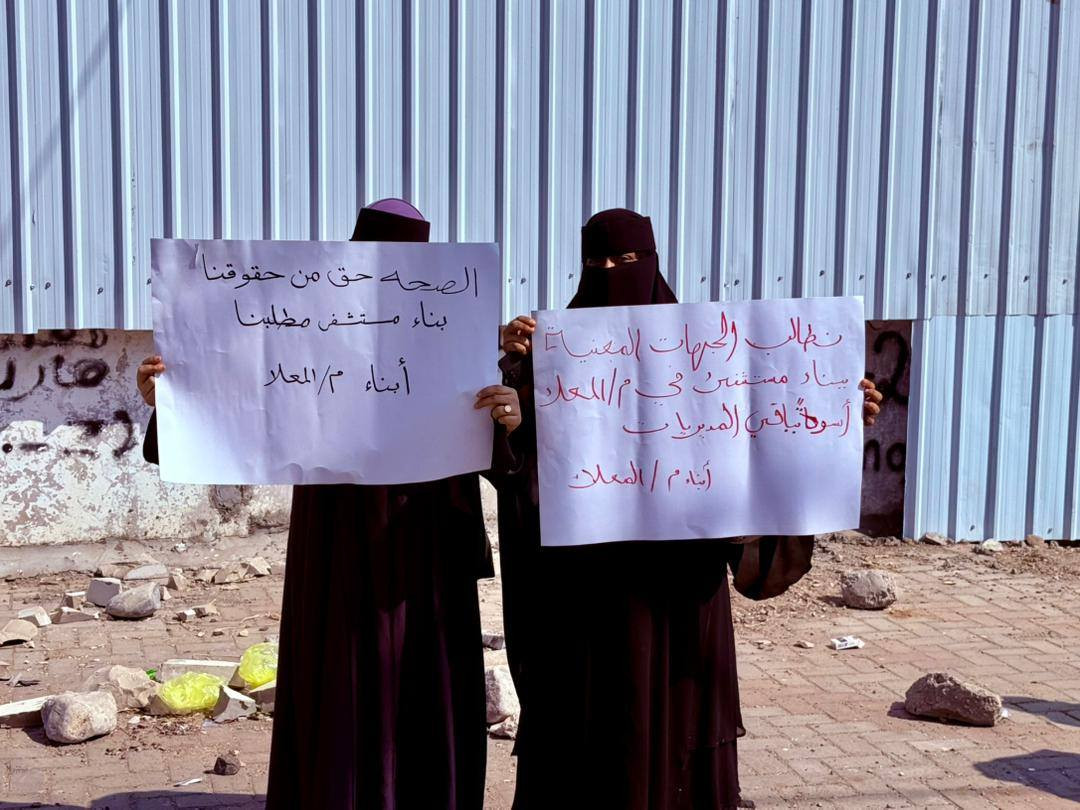 الصحه حق من حقوقنا
بناء مستشفى مطلبنا
أبناء م/المعلا
نطالب الجهات المعنية
ببناء مستشفى في م/المعلا
أسوةً بباقي المديريات
أبناء م/المعلا